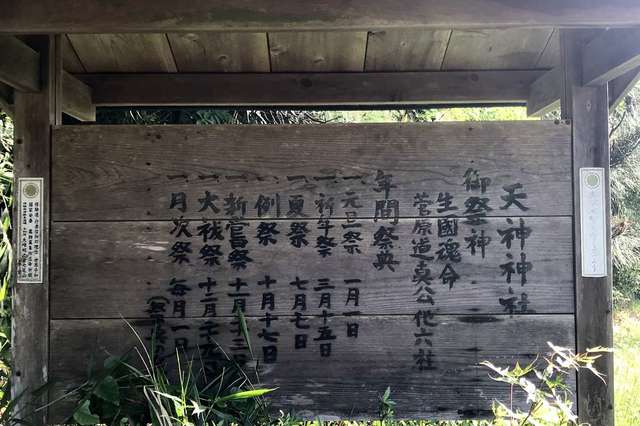 天神神社
御祭神
生國魂命
菅原道真公他六社
年間祭典
一、元旦祭 一月一日
一、祈年祭 三月十五日
一、夏祭 七月七日
一、例祭 十月十七日
一、新嘗祭 十一月二十三日
一、大祓祭 十二月三十
一、月次祭 毎月一日